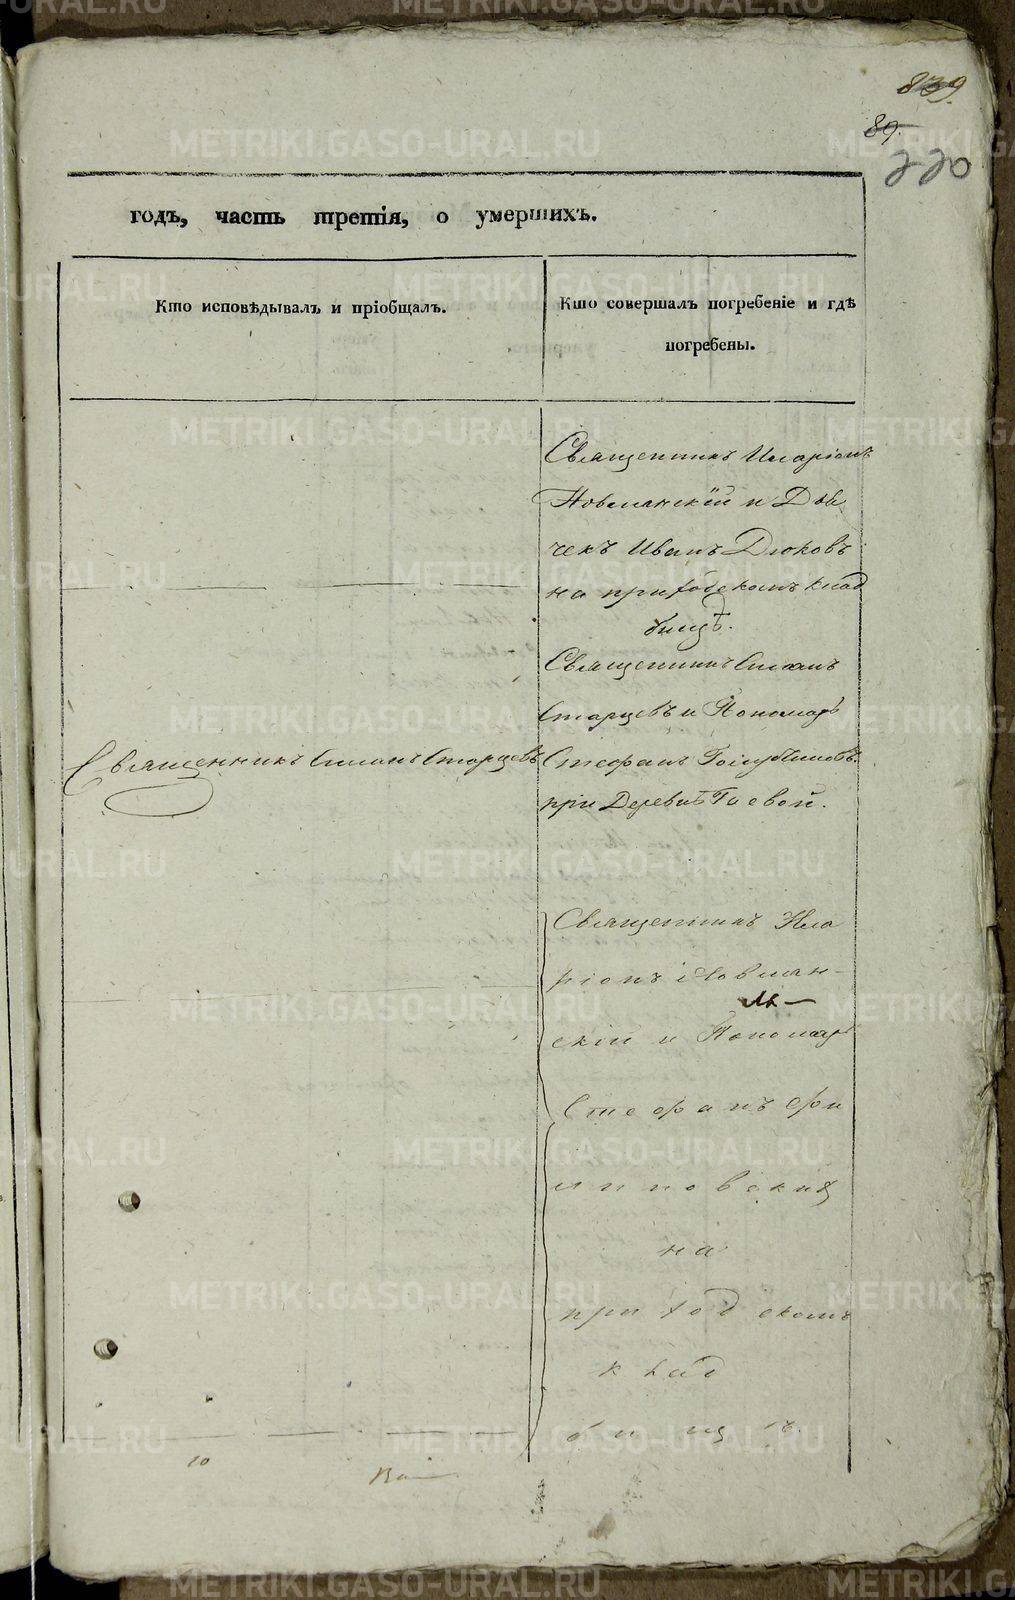 839.
89.
220
годъ, часть третія, о умершихъ.
Кто исповѣдывалъ и пріобщалъ.
Кто совершалъ погребеніе и гдѣ
погребены.
Священникъ Иларіонъ
Новоманскій и Дья
чекъ Иванъ Дюковъ
на приходскомъ клад
бищѣ.
Священникъ Симонъ
Старцевъ и Пономарь
Священникъ Симонъ Старцевъ
Стефанъ
при Деревнѣ Гаевой.
Священникъ Ила
ріонъ
скій и Пономарь
Стефанъ Фи
липовскій
на
приходскомъ
клад
бищѣ.
10
METRIKI.GASO-URAL.RU